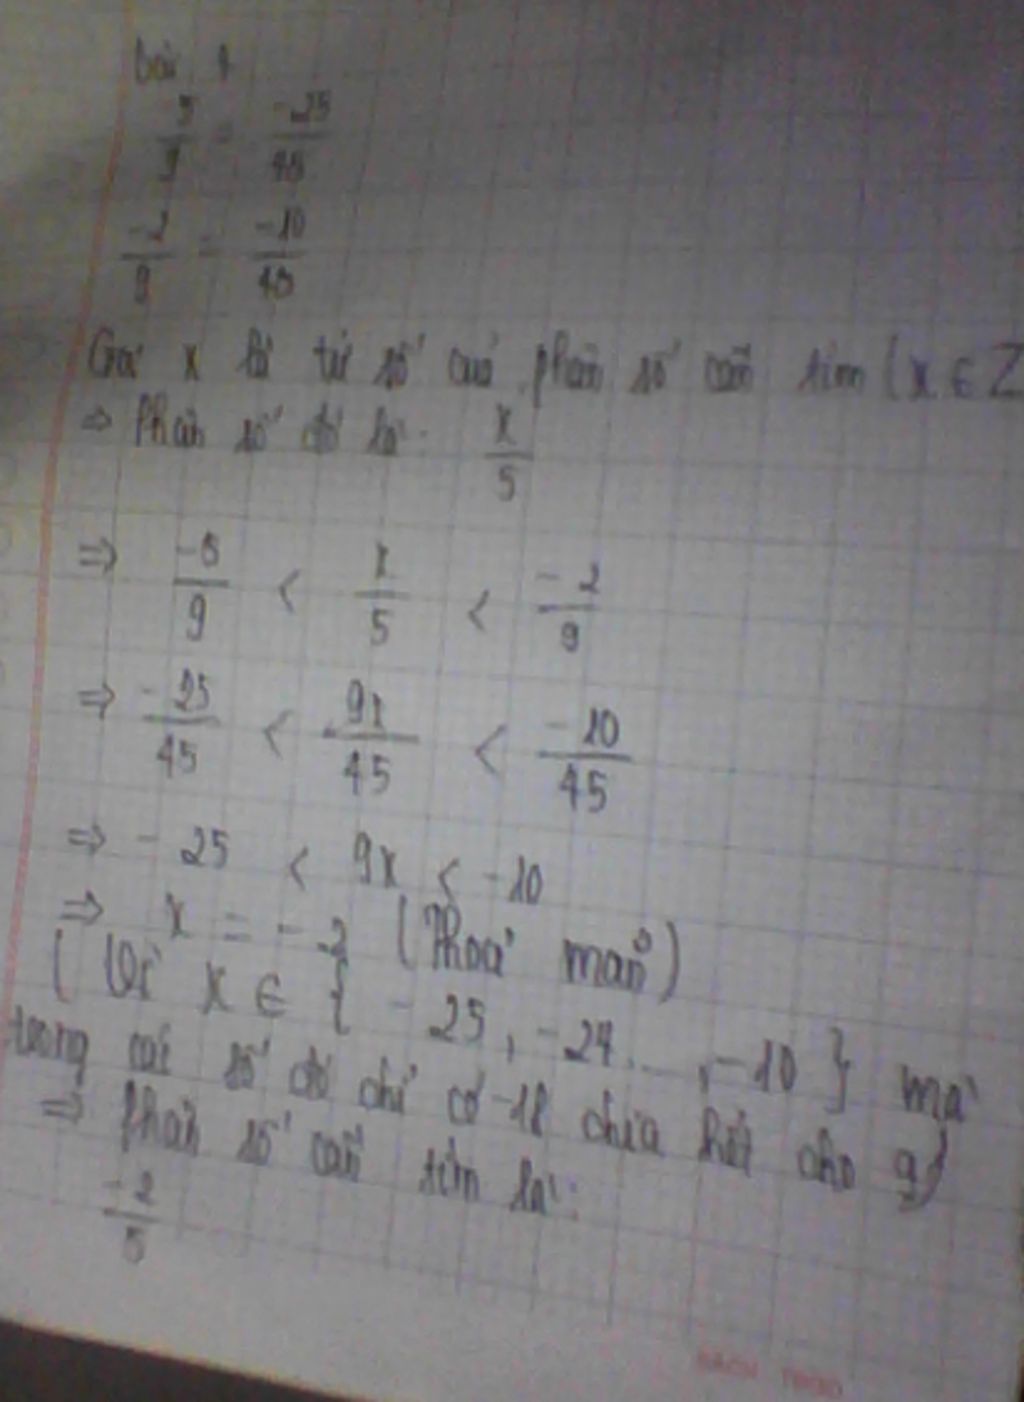 bài 1
5/9 = -25/45
-2/9 = -10/45
Gọi x là tử số của phân số cần tìm (x ∈ Z
⇒ Phân số đó là: x/5
⇒ -5/9 < x/5 < -2/9
⇒ -25/45 < 9x/45 < -10/45
⇒ -25 < 9x < -10
⇒ x = -2 (Thoả mãn)
( Vì x ∈ { -25, -24..., -10 } mà
trong các số đó chỉ có -18 chia hết cho 9)
⇒ Phân số cần tìm là:
-2/5